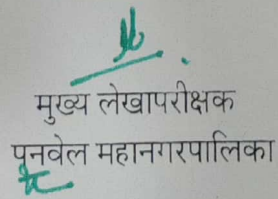 मुख्य लेखापरीक्षक
पनवेल महानगरपालिका